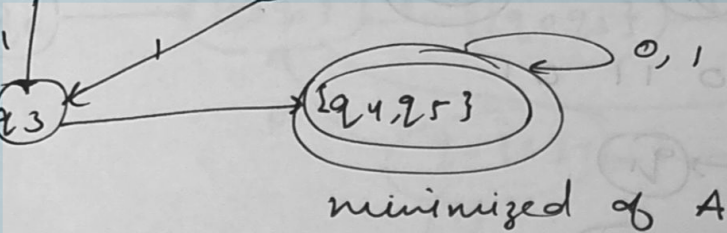 1
1
0, 1
q3
{q4,q5}
minimized of A